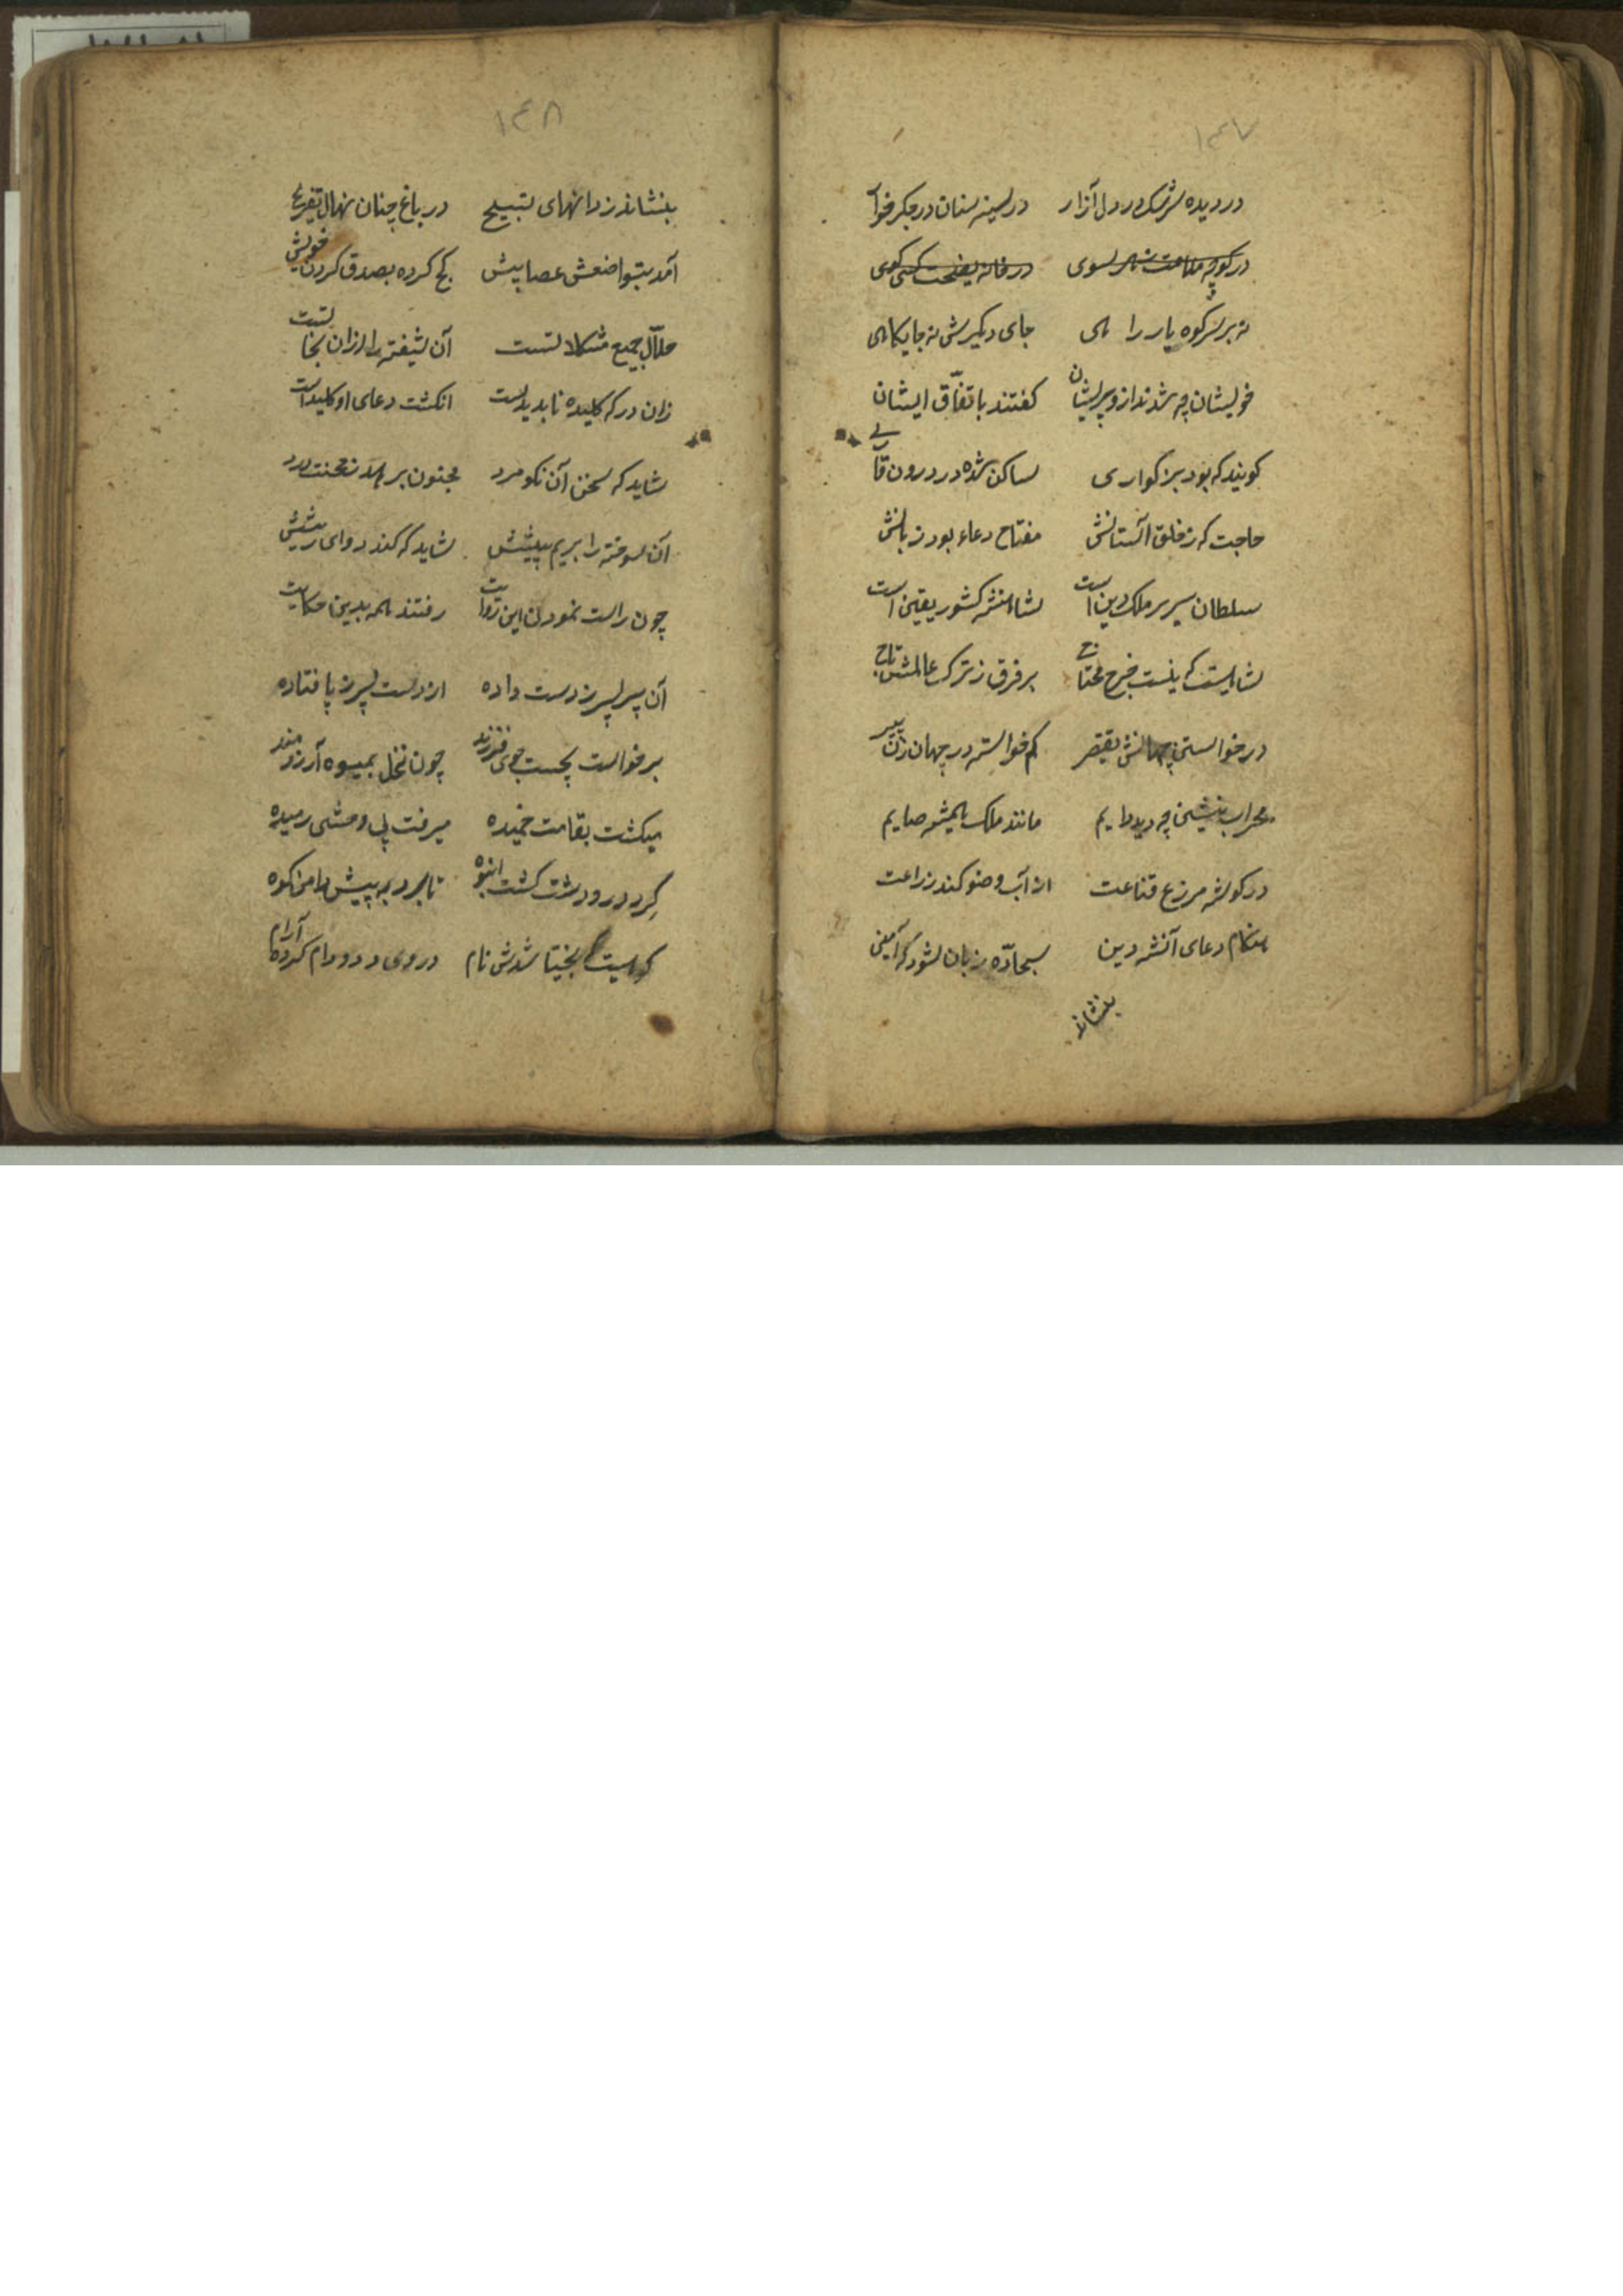 ۱۴۷
در دیده سرشک در دل آزار در سینه سنان در جگر خار
در کوچه ملامت سوی در خانه نصیحت کسی کوی
نه بر سر کوه یار را هی جای دیگرش نه جایکاهی
خویشان چه شدند ازو پریشان کفتند باتفاق ایشان
کویند که بود بزرکواری ساکن شده در درون
حاجت که خلق آستانش مفتاح دعاء بود زبانش
سلطان سریر ملک دین است شاهنشه کشور یقین است
شاهیست که نیست خرج محتاج بر فرق ز ترک عالمش تاج
در خواستن کم خواسته در جهان پیر
محراب نشینی چه دید دایم مانند ملک همیشه صایم
در کوشه مزرع قناعت از آب وضو کند زراعت
هنکام دعای آن شه دین سجاده زبان شود که آمین
بنشاند
۱۴۸
بنشاند ز دانهای تسبیح در باغ جنان نهال تفریح
آمد بتواضعش عصا پیش کج کرده بصدق کردن خویش
حلال جمیع مشکلاتست آن شیفته را ازان نجاتست
زان در که کلید ناپدیدست انکشت دعای او کلیداست
شاید که سخن آن نکو مرد مجنون برهد ز محنت درد
آن سوخته را بریم پیشش شاید که کند دوای ریشش
چون راست نمودن این روایت رفتند همه بدین حکایت
آن پیر پسر ز دست داده از دست پسر ز پا فتاده
برخواست بجست جوی فرزند چون نخل بمیوه آرزومند
میکشت بقامت خمیده میرفت پی وحشی رمیده
کرد در و دشت کشت انبوه تا برد به پیش دامن کوه
شدش نام در وی دد و دام کرده آرام